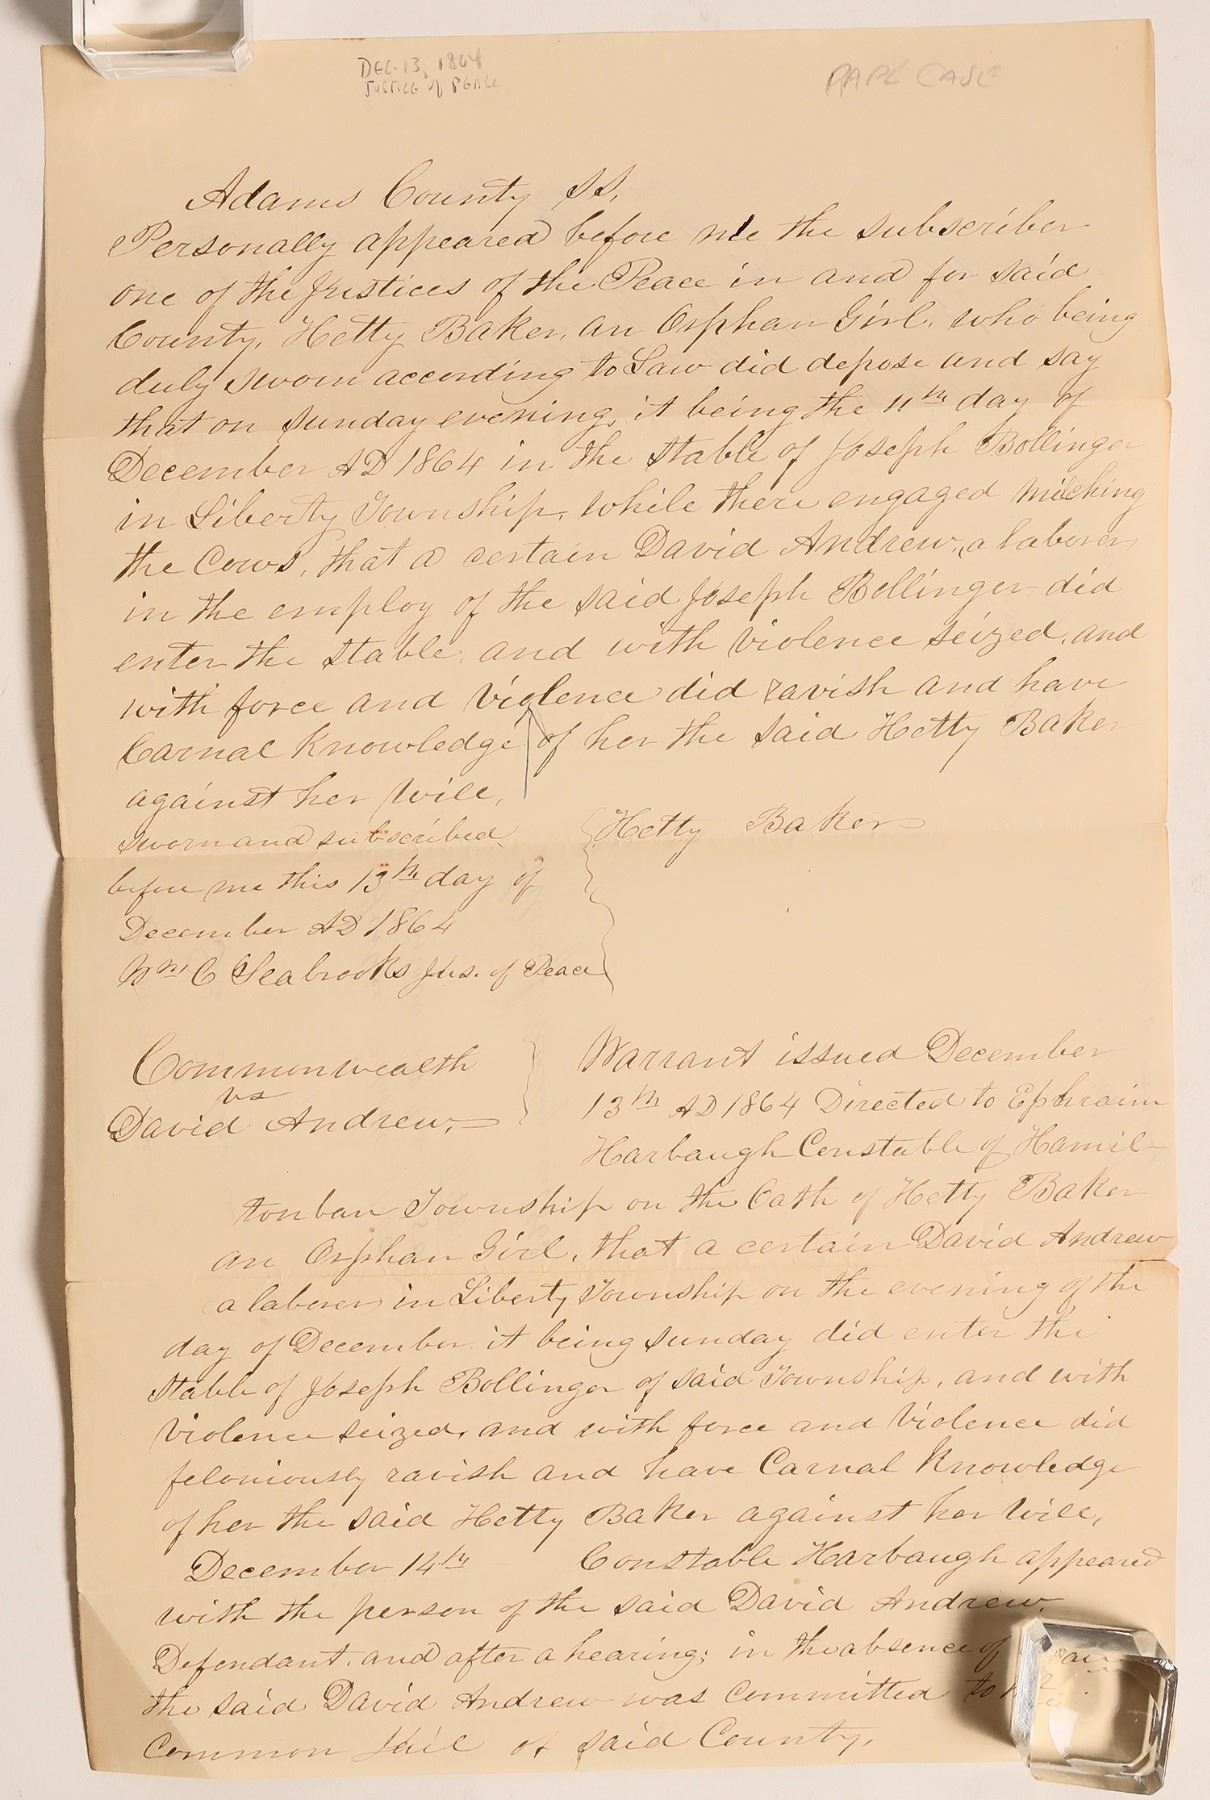 DEC. 13, 1864
JUSTICE of PEACE
RAPE CASE
Adams County SS,
Personally appeared before me the subscriber
one of the Justices of the Peace in and for said
County, Hetty Baker, an Orphan Girl, who being
duly sworn according to Law did depose and say
that on Sunday evening, it being the 11th day of
December AD 1864 in the Stable of Joseph Bollinger
in Liberty Township, while there engaged milching
the Cows, that a certain David Andrew, a laborer
in the employ of the said Joseph Bollinger did
enter the Stable, and with violence seized, and
with force and violence did ravish and have
Carnal Knowledge of her the said Hetty Baker
against her Will,
Sworn and subscribed
before me this 13th day of
December AD 1864
Wm C Seabrooks Jus. of Peace
Hetty Baker
Commonwealth
vs
David Andrew,
Warrant issued December
13th AD 1864 Directed to Ephraim
Harbaugh Constable of Hamil-
tonban Township on the Oath of Hetty Baker
an Orphan Girl, that a certain David Andrew
a laborer in Liberty Township on the evening of the
day of December it being Sunday did enter the
Stable of Joseph Bollinger of said Township, and with
Violence seized, and with force and Violence did
feloniously ravish and have Carnal Knowledge
of her the said Hetty Baker against her Will,
December 14th Constable Harbaugh appeared
with the person of the said David Andrew,
Defendant, and after a hearing; in the absence of
the said David Andrew was Committed to
Common Jail of said County,